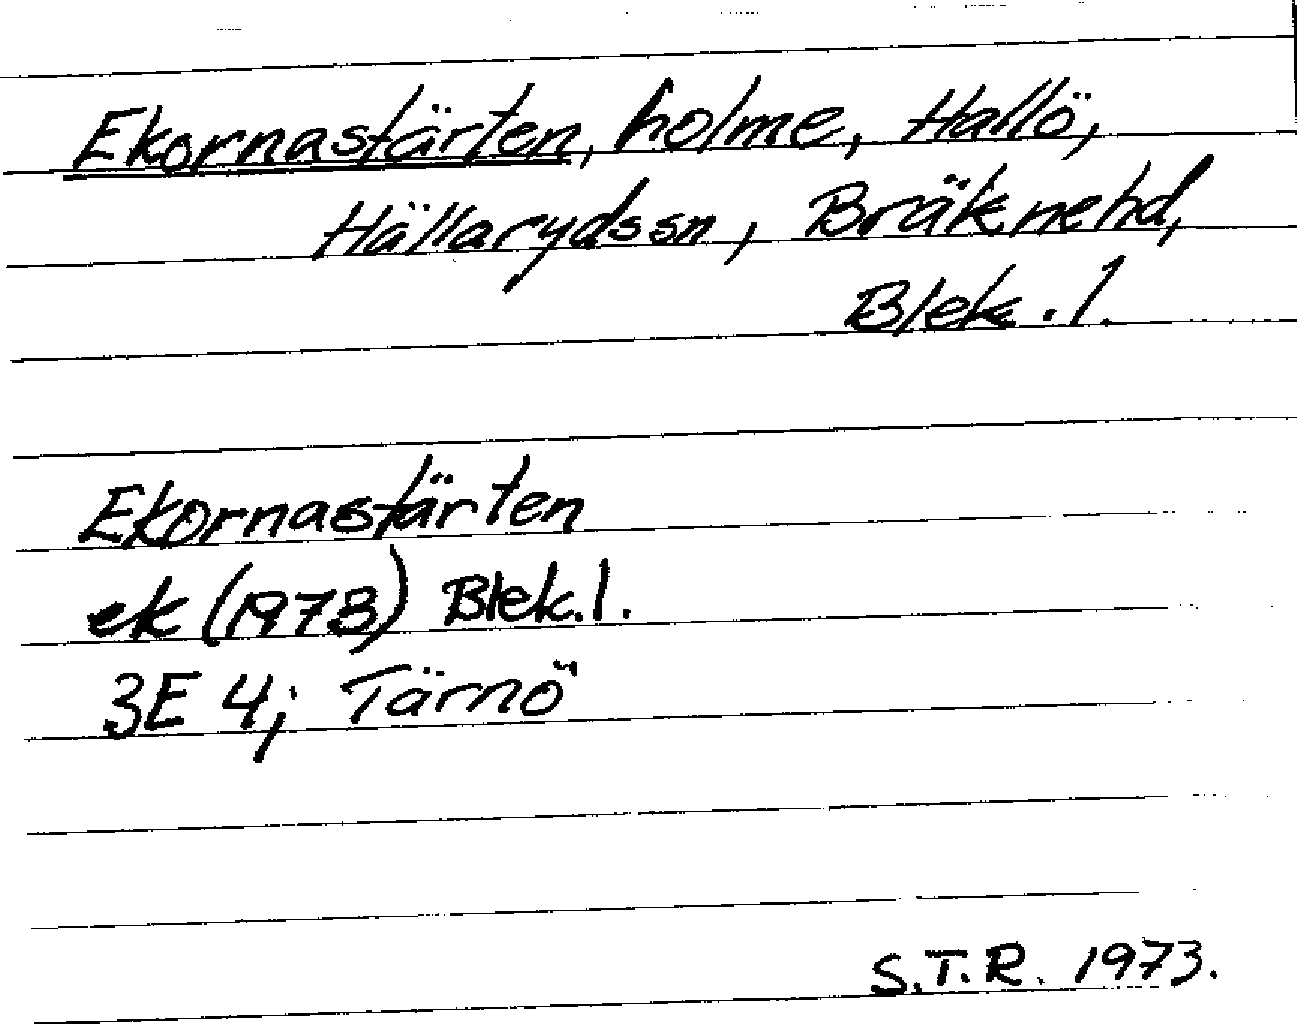 Ekornastärten, holme, Hallö,
Hällarydssn, Bräknehd,
Blek. l.
Ekornastärten
ek (1973) Blek. l.
3E 4; Tärnö
S.T.R. 1973.